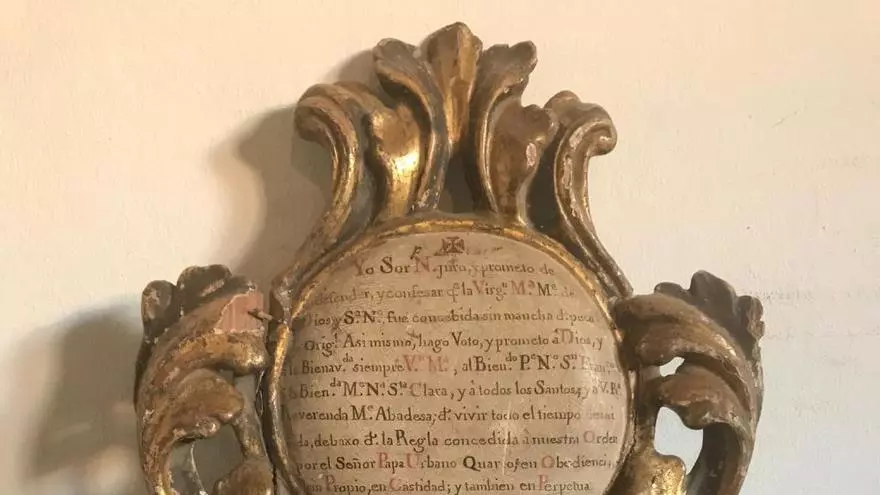 Yo Sor N. juro, y prometo de
defender, y confesar q.e la Virg.n M.a M.e de
Dios y S.a N.a fue concebida sin mancha d. peca
Orig.l Asi mismo, hago Voto, y prometo â Dios, y
la Bienav.da siempre V.n M.a, al Bien.do P.e N.o S.n Fran.co
Bien.da M.e N.a S.ta Clara, y â todos los Santos, y â V.R.
Reverenda M.e Abadesa; d.e vivir todo el tiempo de mi
da, debaxo d.e la Regla concedida â nuestra Orden
por el Señor Papa Urbano Quarto, en Obedienci,
Propio, en Castidad; y tambien en Perpetua